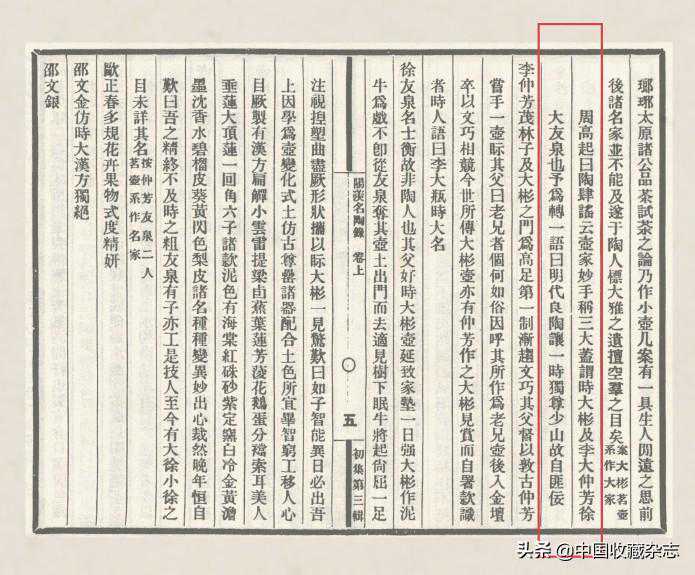 瑯琊太原諸公品茶試茶之論乃作小壺几案有一具生人閒遠之思前
後諸名家並不能及遂于陶人標大雅之遺擅空羣之目矣案大彬茗壺系作大家
周高起曰陶肆謠云壺家妙手稱三大蓋謂時大彬及李大仲芳徐
大友泉也予爲轉一語曰明代良陶讓一時獨尊少山故自匪佞
李仲芳茂林子及大彬之門爲高足第一制漸趨文巧其父督以敦古仲芳
嘗手一壺眎其父曰老兄者個何如俗因呼其所作爲老兄壺後入金壇
卒以文巧相競今世所傳大彬壺亦有仲芳作之大彬見賞而自署款識
者時人語曰李大瓶時大名
徐友泉名士衡故非陶人也其父好時大彬壺延致家塾一日强大彬作泥
牛爲戲不卽從友泉奪其壺土出門而去適見樹下眠牛將起尙屈一足
陽羨名陶錄 卷上 五 初集第三輯
注視捏塑曲盡厥形狀攜以眎大彬一見驚歎曰如子智能異日必出吾
上因學爲壺變化式土仿古尊罍諸器配合土色所宜畢智窮工移人心
目厥製有漢方扁觶小雲雷提梁卣蕉葉蓮芳菱花鵝蛋分襠索耳美人
垂蓮大頂蓮一回角六子諸款泥色有海棠紅硃砂紫定窰白冷金黃澹
墨沈香水碧榴皮葵黃閃色梨皮諸名種種變異妙出心裁然晚年恒自
歎曰吾之精終不及時之粗友泉有子亦工是技人至今有大徐小徐之
目未詳其名按仲芳友泉二人茗壺系作名家
歐正春多規花卉果物式度精妍
邵文金仿時大漢方獨絕
邵文銀
头条 @中国收藏杂志